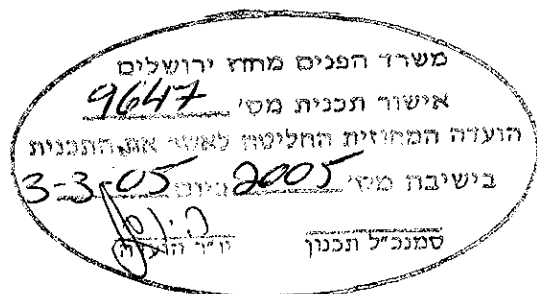 משרד הפנים מחוז ירושלים
אישור תכנית מס' 9647
הועדה המחוזית החליטה לאשר את התכנית
בישיבה מס' 2005 ביום 3-3-05
סמנכ"ל תכנון יו"ר הועדה